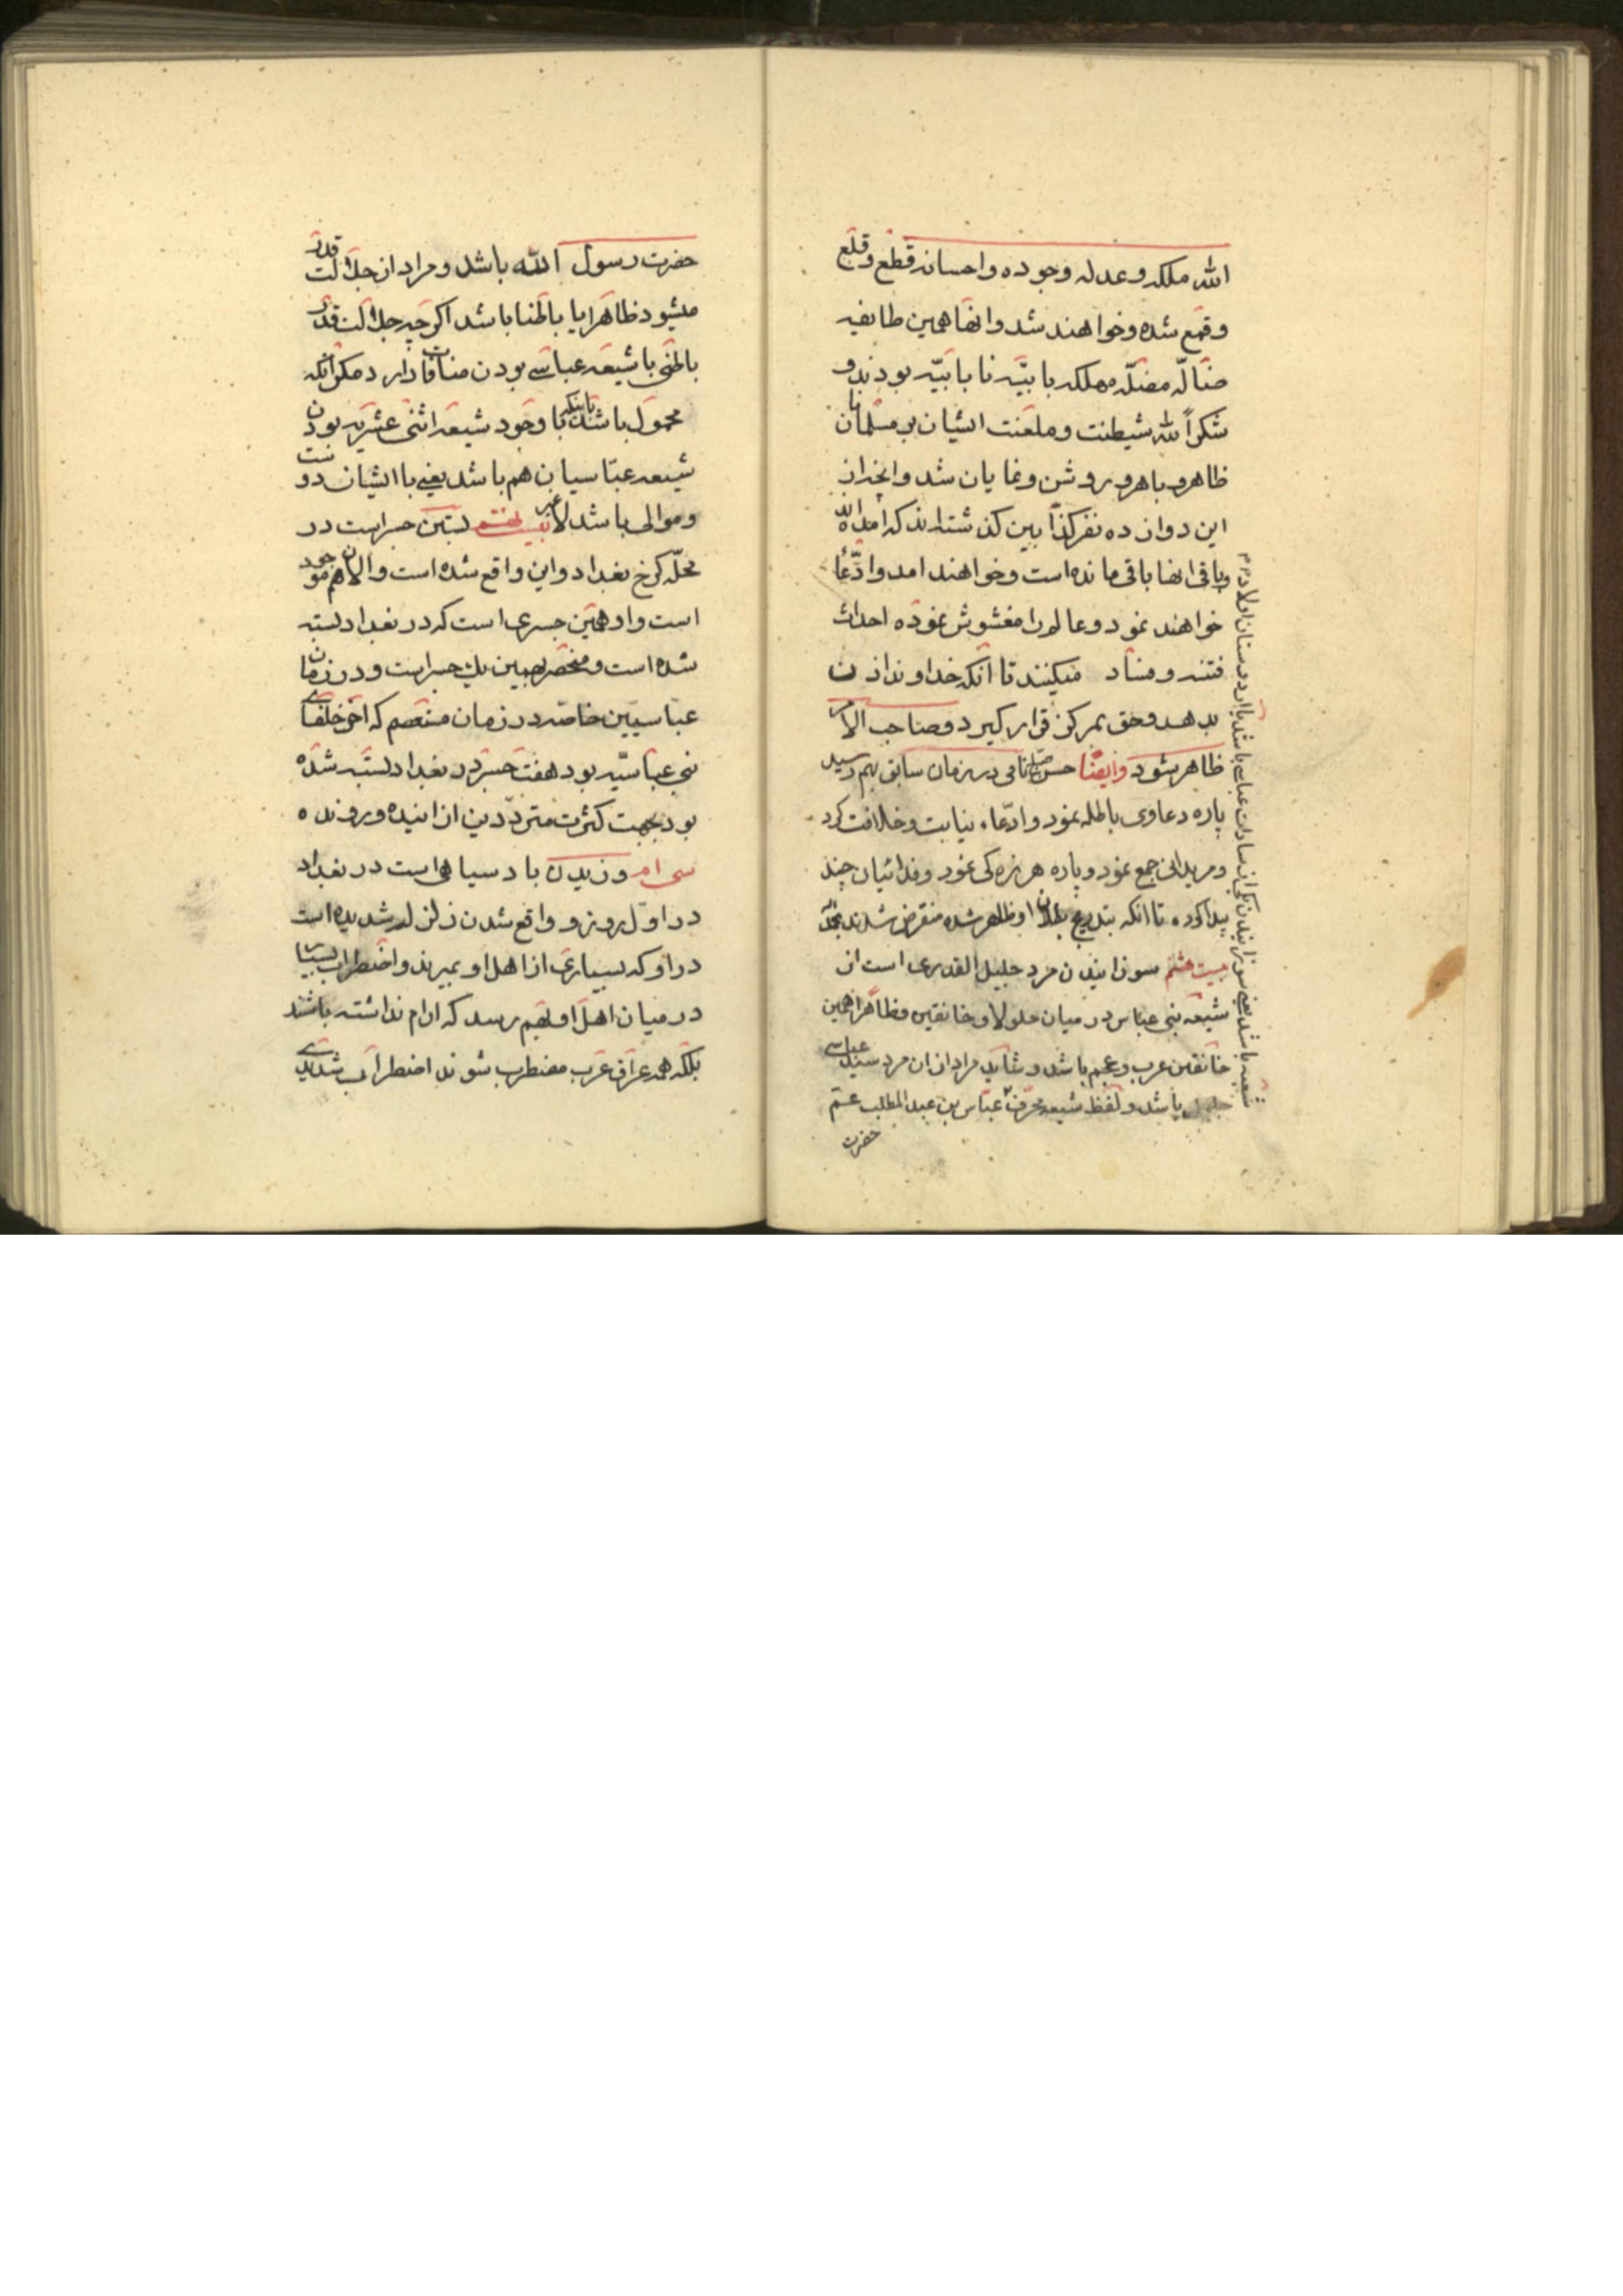 الله ملکه وعدله وجوده واحسانه قطع وقلع
وقمع شده وخواهند شد وانها همین طایفه
ضالّه مضلّه مهلکه بابیّه نابابیّه بودند و
شکراً لله شیطنت وملعنت ایشان بر مسلمانان
ظاهر و باهر و روشن ونمایان شد وانچه از
این دوازده نفر کذابین گذشته اند که امده الله
وباقی انها باقی مانده است وخواهند امد وادّعا
خواهند نمود وعالم را مغشوش نموده احداث
فتنه وفساد میکنند تا انکه خداوند اذن
بدهد وحق بمرکز قرار گیرد وصاحب الامر
ظاهر شود وایضًا حسن صباح نامی در زمان سابق بهم رسید
پاره دعاوی باطله نمود وادّعاء نیابت وخلافت کرد
ومریدانی جمع نمود وپاره هرزه کی نمود وفدائیان چند
پیدا کرده تا انکه بتدریج بطلان او ظاهر شده منقرض شدند بحمدالله
بیست هشتم سوزانیدن مرد جلیل القدری است از
شیعه بنی عباس در میان حلولا وخانقین وظاهرا همین
خانقین عرب وعجم باشد وشاید مراد از ان مرد سید عباسی
جلیل باشد ولفظ شیعه محرّف عبّاس بن عبد المطلب عمّ
حضرت
شیعه باشد یعنی سوزانیدن یکی از سادات عباسی باشد یا از دوستان اولاد
حضرت رسول الله باشد ومراد از جلالت قدر
میشود ظاهرا یا باطنا باشد اگرچه جلالت قدر
باطنی با شیعه عباسی بودن منافات دارد مگر انکه
محمول باشد باینکه با وجود شیعه اثنی عشریه بودن
شیعه عبّاسیان هم باشد یعنی با ایشان دوست
وموالی باشد لا غیر بیست نهم بستن جسر است در
محلّه کرخ بغداد واین واقع شده است والان هم موجود
است واو همین جسری است که در بغداد بسته
شده است ومنحصر بهمین یک جسر است ودر زمان
عبّاسیین خاصّه در زمان مستعصم که اخر خلفای
بنی عبّاسیّه بود هفت جسر در بغداد بسته شده
بود بجهت کثرت متردّدین از اینده و رونده
سی ام وزیدن باد سیاهی است در بغداد
در اوّل روز و واقع شدن زلزله شدیده است
در او که بسیاری از اهل او بمیرند واضطراب بسیار
در میان اهل او بهم رسد که ارام نداشته باشند
بلکه همه عراق عرب مضطرب شوند اضطراب شدیدی